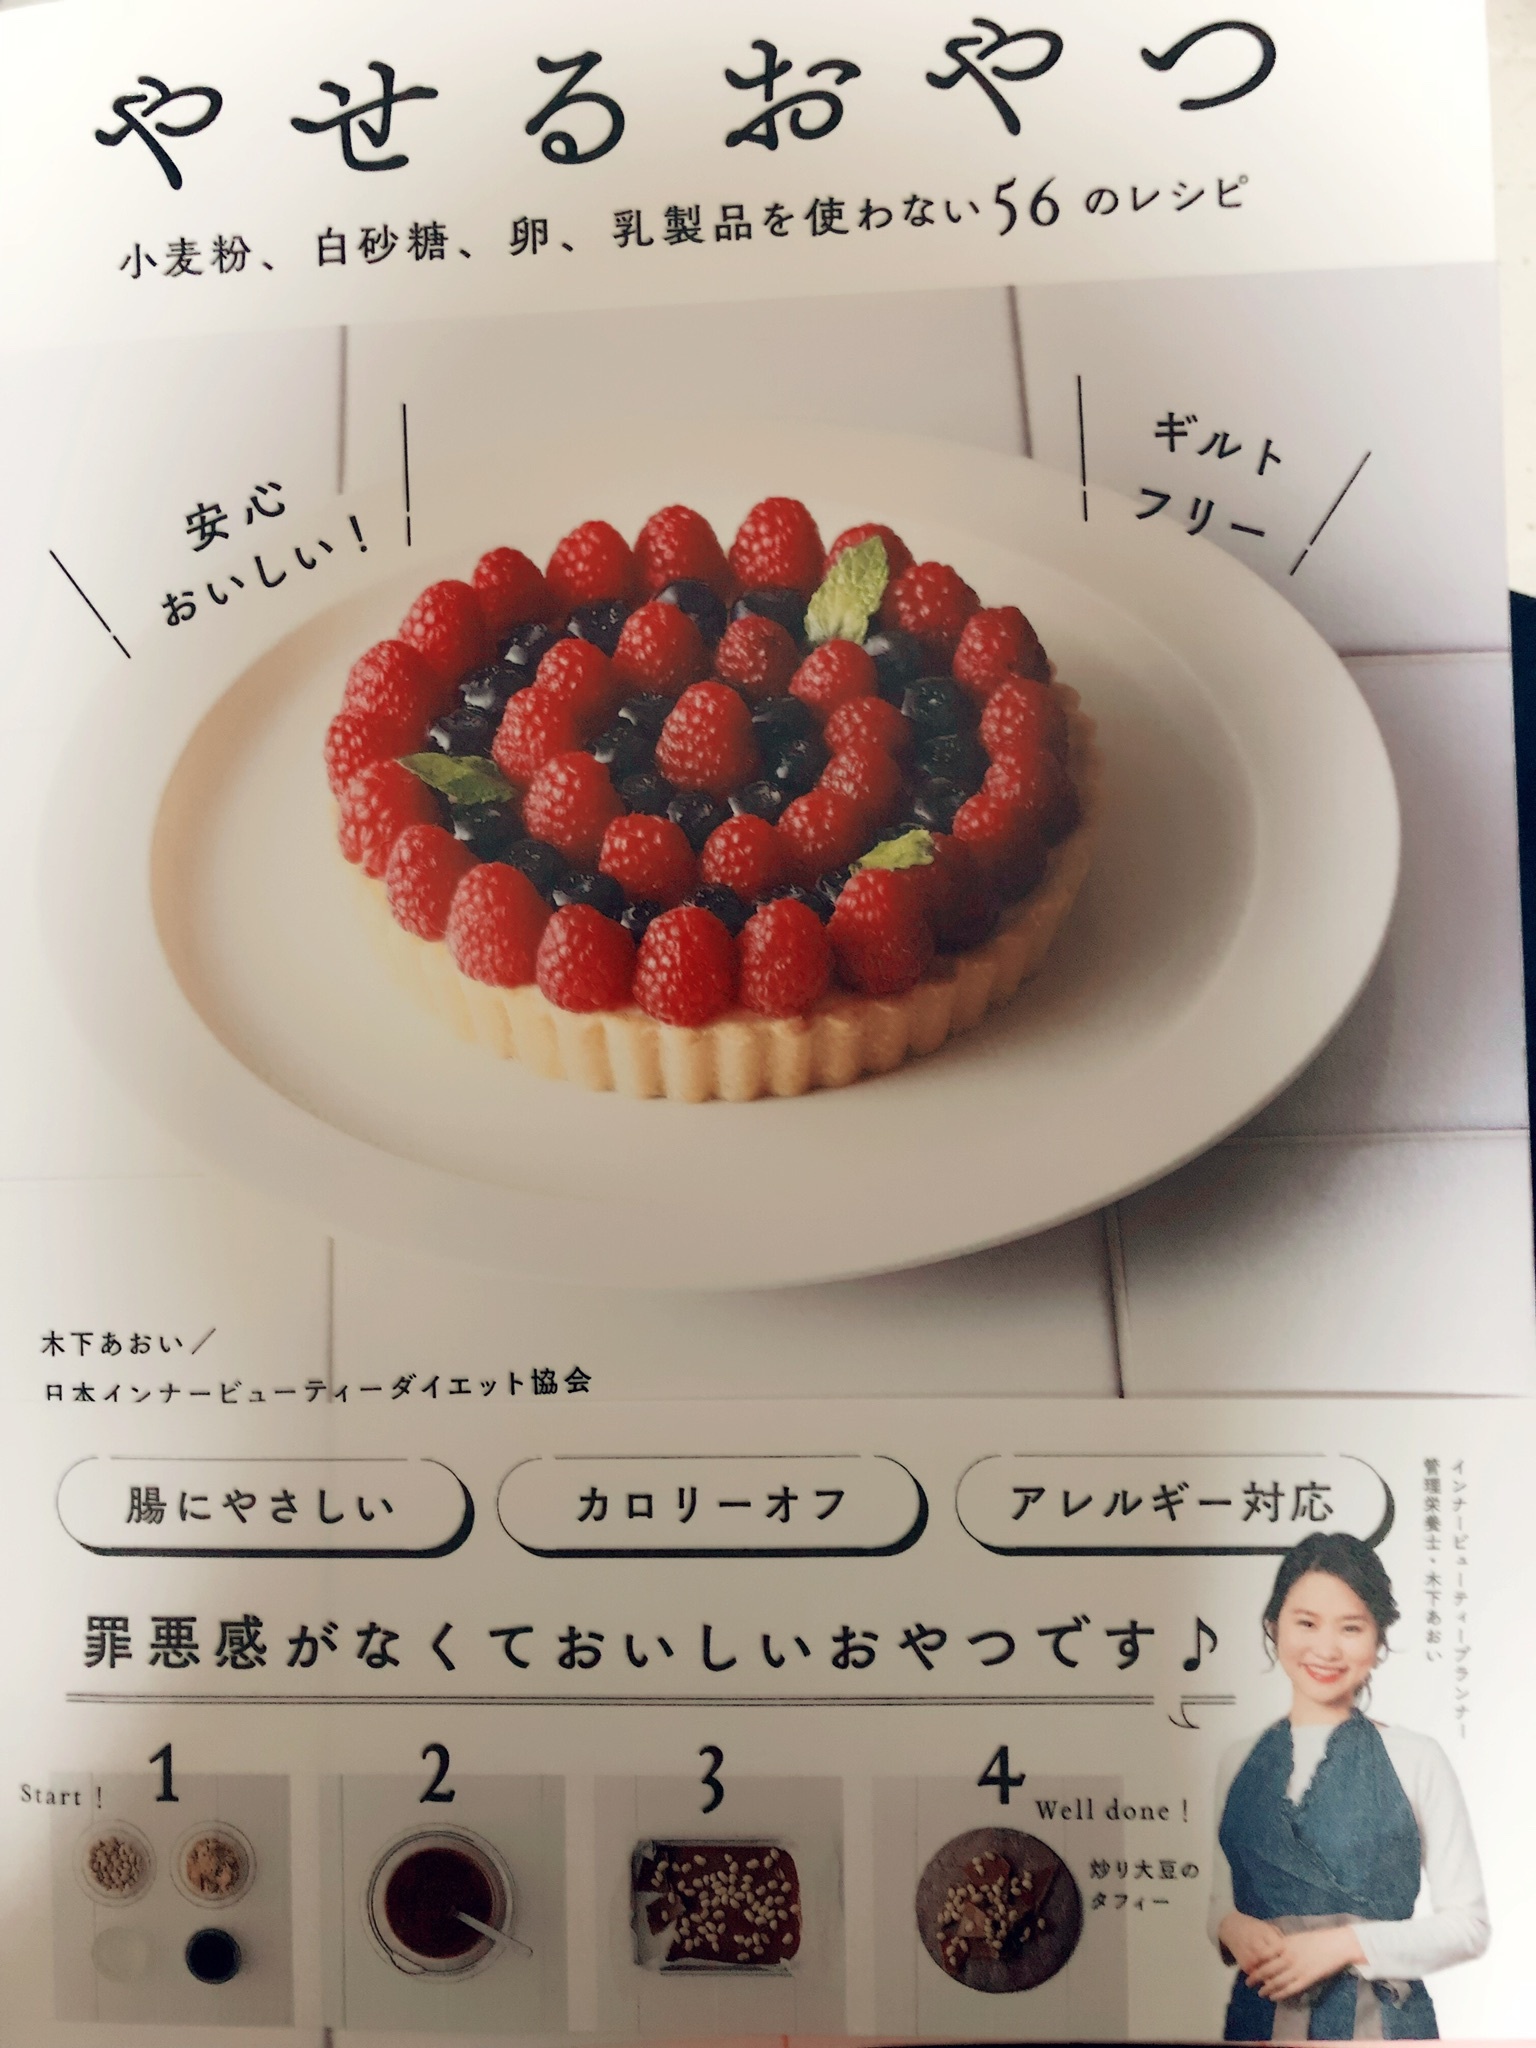 やせるおやつ
小麦粉、白砂糖、卵、乳製品を使わない56のレシピ
安心
おいしい！
ギルト
フリー
木下あおい／
日本インナービューティーダイエット協会
腸にやさしい
カロリーオフ
アレルギー対応
インナービューティープランナー
管理栄養士・木下あおい
罪悪感がなくておいしいおやつです♪
Start！
1
2
3
4
Well done！
炒り大豆の
タフィー